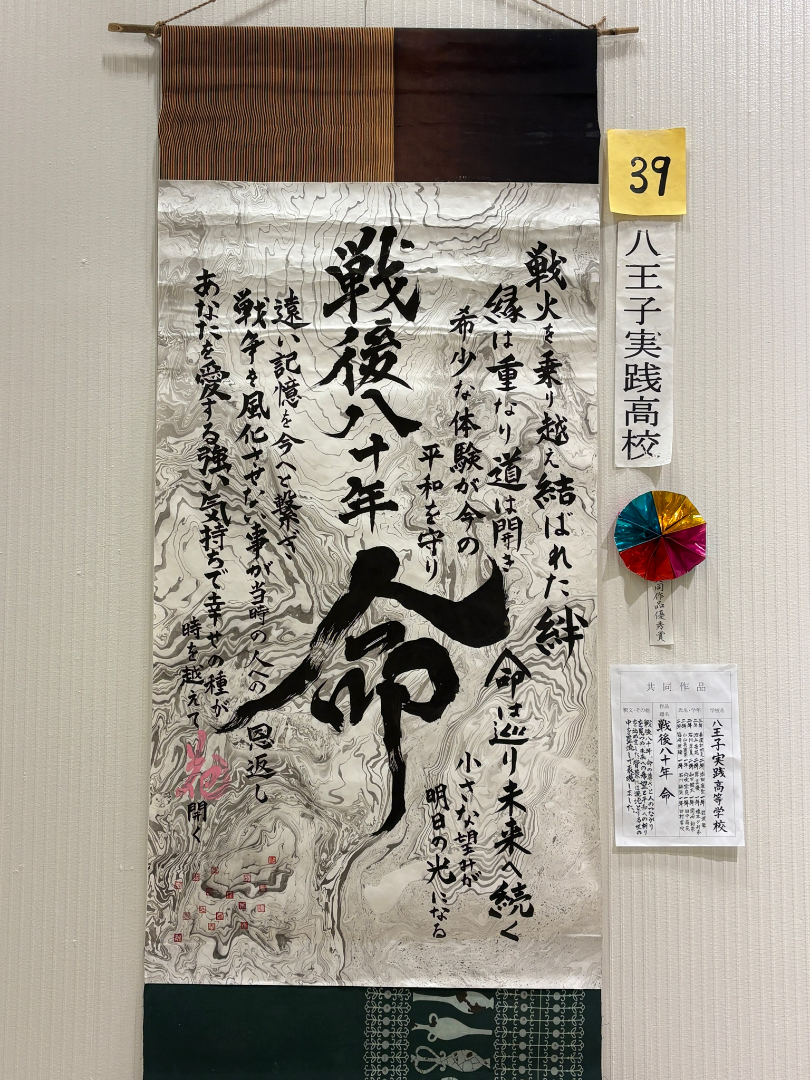 戦火を乗り越え結ばれた絆
縁は重なり道は開き
命は巡り未来へ続く
希少な体験が今の
平和を守り
小さな望みが
明日の光になる
戦後八十年
命
遠い記憶を今へと繋ぎ
戦争を風化させない事が当時の人への恩返し
あなたを愛する強い気持ちで幸せの種が
時を越えて
花開く
39
八王子実践高校
同作品優秀賞
共同作品
学校名
八王子実践高等学校
氏名・学年
作品題名
戦後八十年 命
釈文・その他